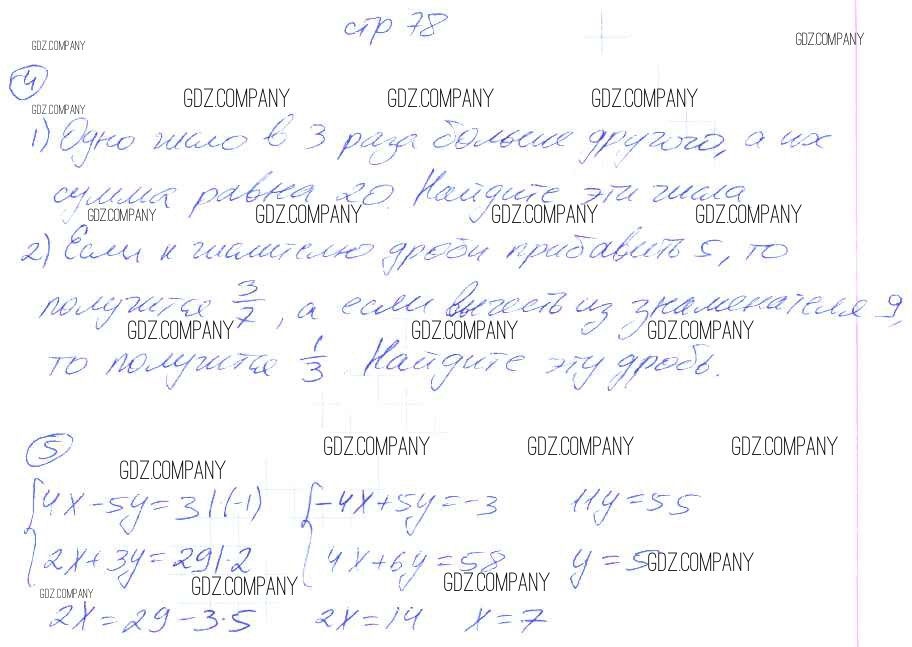 стр 78
GDZ.COMPANY GDZ.COMPANY
4
GDZ.COMPANY GDZ.COMPANY GDZ.COMPANY
GDZ.COMPANY
1) Одно число в 3 раза больше другого, а их
сумма равна 20. Найдите эти числа
GDZ.COMPANY GDZ.COMPANY GDZ.COMPANY GDZ.COMPANY
2) Если к числителю дроби прибавить 5, то
получится 3/7, а если вычесть из знаменателя 9,
GDZ.COMPANY GDZ.COMPANY GDZ.COMPANY
то получится 1/3. Найдите эту дробь.
5
GDZ.COMPANY GDZ.COMPANY GDZ.COMPANY
GDZ.COMPANY
{4x-5y=3|(-1) {-4x+5y=-3 11y=55
2x+3y=29|·2 4x+6y=58 y=5
GDZ.COMPANY
GDZ.COMPANY GDZ.COMPANY GDZ.COMPANY
2x=29-3·5 2x=14 x=7